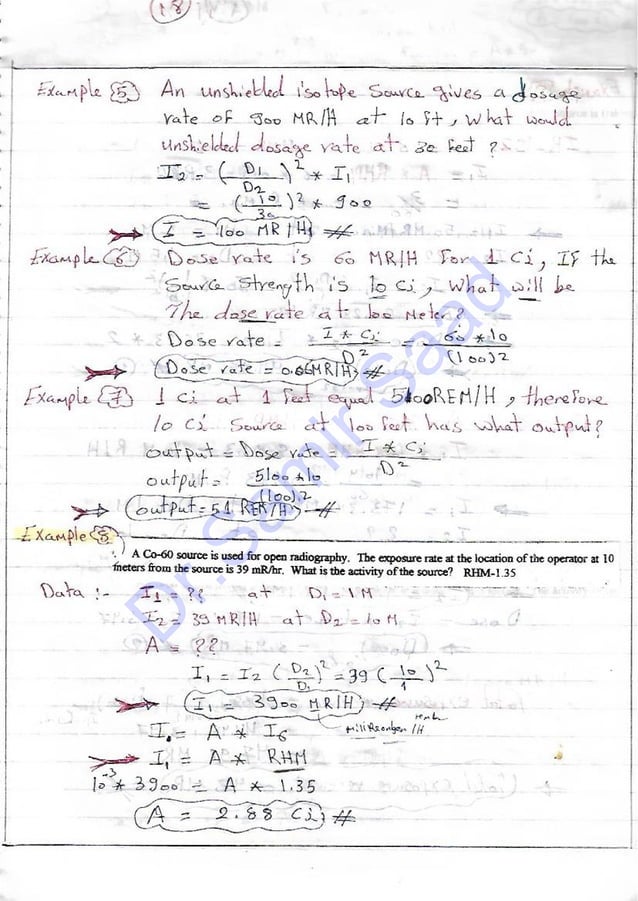 18
Example (5) An unshielded isotope Source gives a dosage
rate of 900 MR/H at 10 ft, What would
unshielded dosage rate at 30 feet ?
I2 = (D1/D2)² * I1
= (10/30)² * 900
I = 100 MR/H #
Example (6) Dose rate is 60 MR/H For 1 Ci, If the
Source Strength is 10 Ci, What will be
The dose rate at 100 Meter ?
Dose rate = I * Ci / D² = 60 * 10 / (100)2
Dose rate = 0.06MR/H #
Example (7) 1 Ci at 1 feet equal 5100REM/H, therefore
10 Ci Source at 100 feet has what output?
output = Dose rate = I * Ci / D²
output = 5100*10 / (100)2
output = 51 RER/H #
Example (5)
A Co-60 source is used for open radiography. The exposure rate at the location of the operator at 10
meters from the source is 39 mR/hr. What is the activity of the source? RHM-1.35
Data :- I1 = ?? at D1 = 1 M
I2 = 39 MR/H at D2 = 10 M
A = ??
I1 = I2 (D2/D1)² = 39 (10/1)²
I1 = 3900 MR/H #
I. = A * I6
I1 = A * RHM
10⁻³ * 3900 = A * 1.35
A = 2.88 Ci #
Dr. Samir Saad